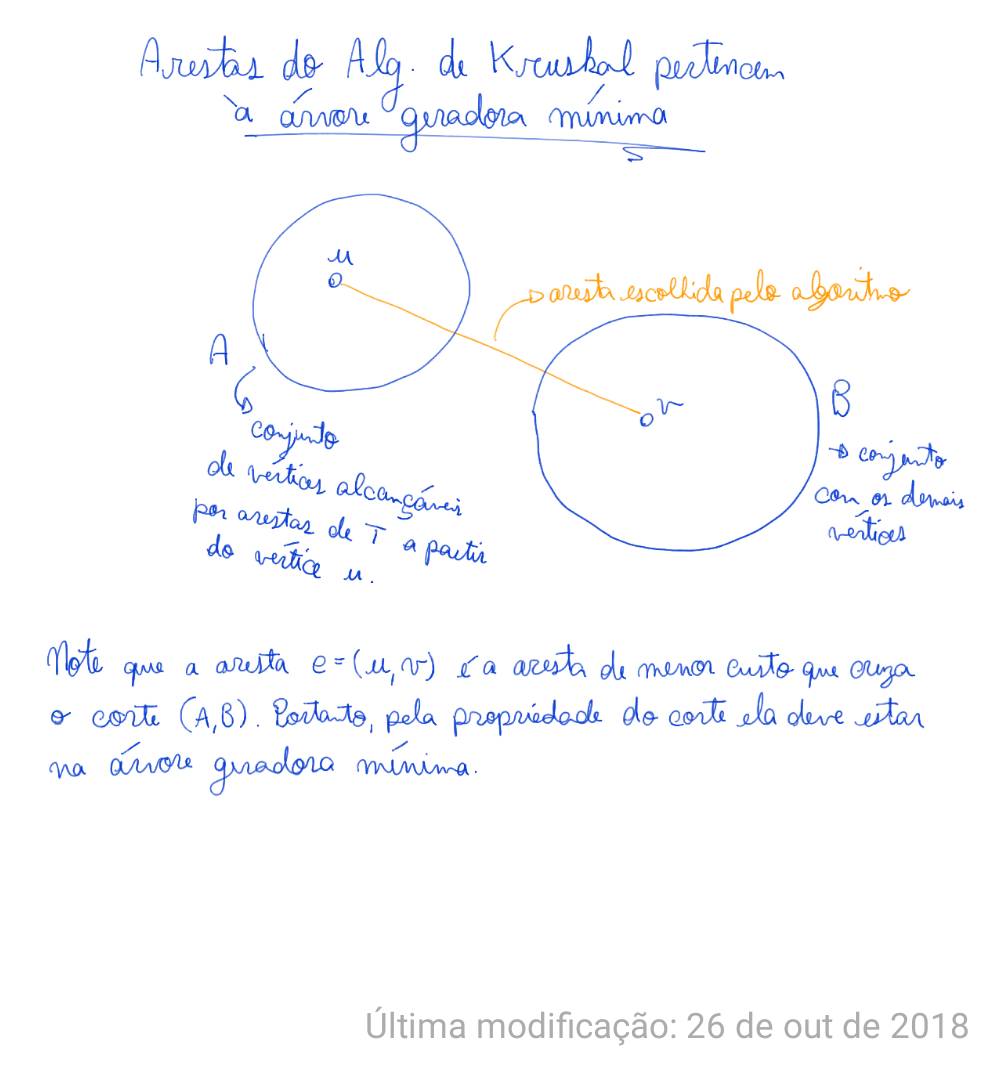 Arestas do Alg. de Kruskal pertencem
à árvore geradora mínima
u
→ aresta escolhida pelo algoritmo
A
v
B
→ conjunto
com os demais
vértices
conjunto
de vértices alcançáveis
por arestas de T a partir
do vértice u.
Note que a aresta e=(u,v) é a aresta de menor custo que cruza
o corte (A,B). Portanto, pela propriedade do corte ela deve estar
na árvore geradora mínima.
Última modificação: 26 de out de 2018